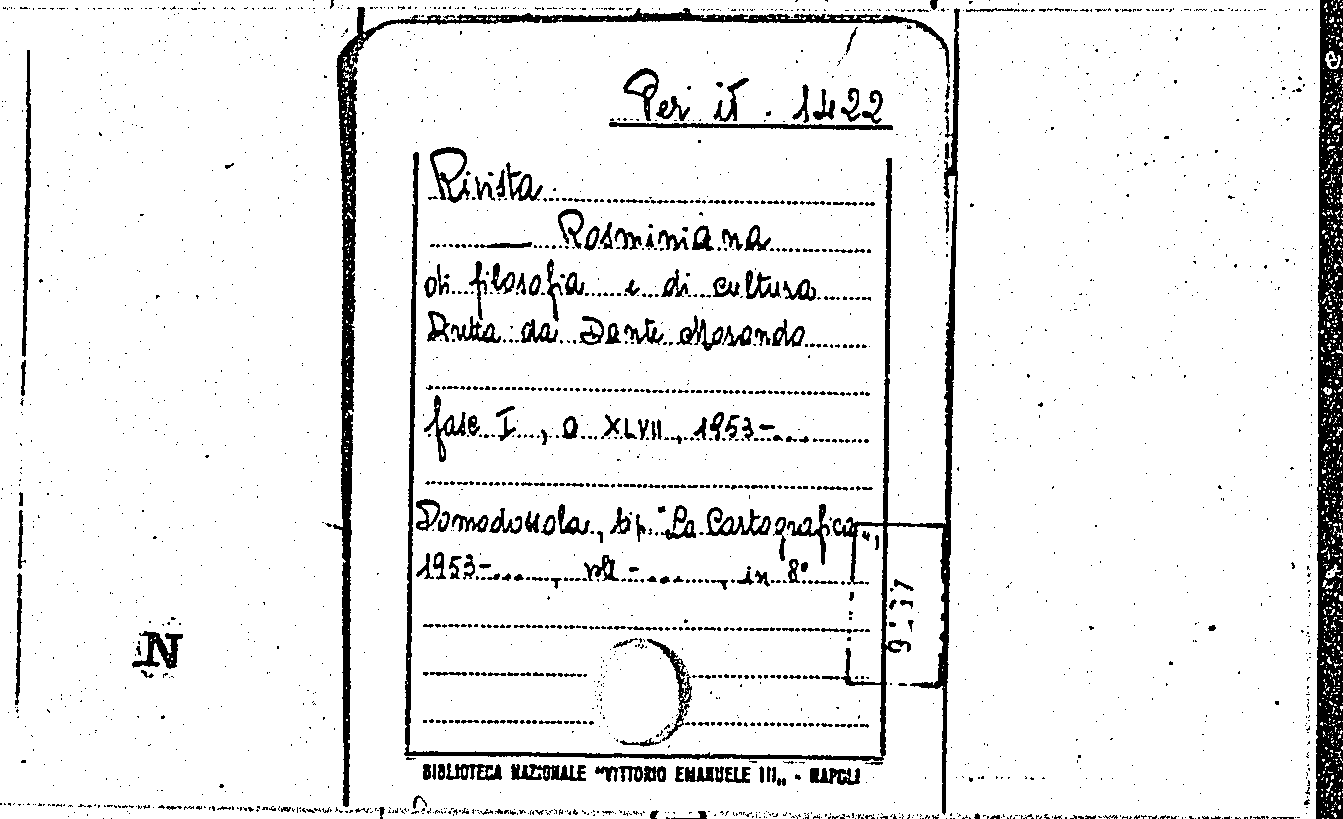 Per it. 1422
Rivista
— Rosminiana
di filosofia e di cultura
Diretta da Dante Morando
fasc I, a XLVII, 1953-...
Domodossola, tip. "La Cartografica",
1953-..., vll - ..., in 8°
N
BIBLIOTECA NAZIONALE "VITTORIO EMANUELE III„ - NAPOLI